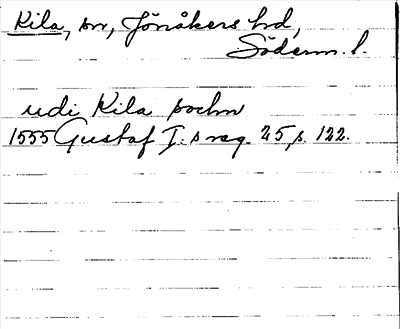 Kila, sn, Jönåkers hd,
Söderm. l.
udi Kila sochn
1555 Gustaf I:s reg. 25, s. 122.